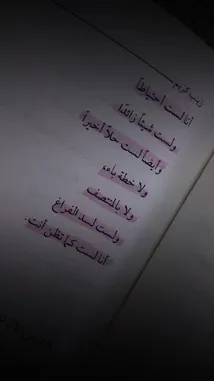 زينب كريم
أنا لست احتياطاً
ولست شيئاً زائدًا
وأيضاً لست حلاً أخيراً
ولا خطة باء،
ولا بالمنتصف
ولست لسد الفراغ
أنا لست كما تظن أنت.